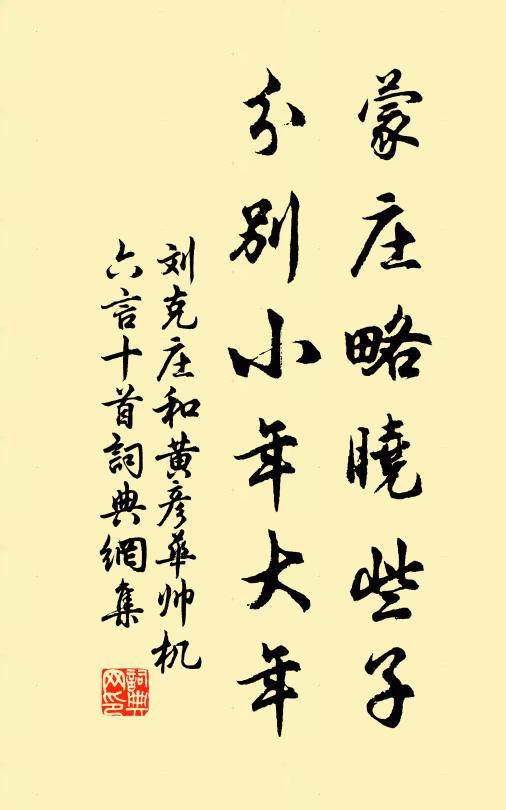 蒙庄略曉些子
分别小年大年
刘克庄和黄彦華帅机
六言十首詞典網集
詞典
网印